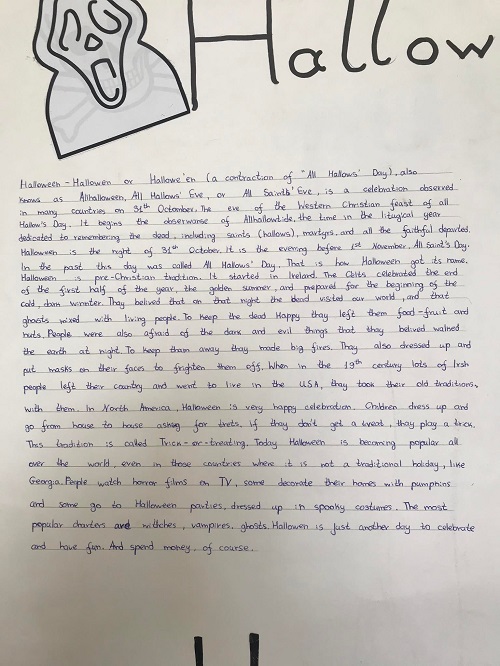 Hallow
Halloween - Hallowen or Hallowe'en (a contraction of "All Hallows' Day), also
knows as Allhalloween, All Hallows' Eve, or All Saints' Eve, is a celebration observed
in many countries on 31th Octomber. The eve of the Western Christian feast of all
Hallow's Day. It begins the obserwanse of Allhallowtide, the time in the litugical year
dedicated to remembering the dead, including saints (hallows), martyrs, and all the faithful departed.
Halloween is the night of 31st October. It is the evening before 1st November, All Saint's Day.
In the past this day was called All Hallows' Day. That is how Halloween got its name.
Halloween is pre-Christian tradition. It started in Ireland. The Celts celebrated the end
of the first half of the year, the golden summer, and prepared for the beginning of the
cold, dark winter. They belived that on that night the dead visited our world, and that
ghosts mixed with living people. To keep the dead Happy they left them food-fruit and
nuts. People were also afraid of the dark and evil things that they belived walked
the earth at night. To keep them away they made big fires. They also dressed up and
put masks on their faces to frighten them off. When in the 19th century lots of Irsh
people left their country and went to live in the USA, they took their old traditions,
with them. In North America, Halloween is very happy celebration. Children dress up and
go from house to house asking for trets. If they don't get a treat, they play a trick.
This tradition is called Trick-or-treating. Today Halloween is becoming popular all
over the world, even in those countries where it is not a traditional holiday, like
Georgia. People watch horror films on TV, some decorate their homes with pumpkins
and some go to Halloween parties, dressed up in spooky costumes. The most
popular charters are witches, vampires, ghosts. Hallowen is just another day to celebrate
and have fun. And spend money, of course.